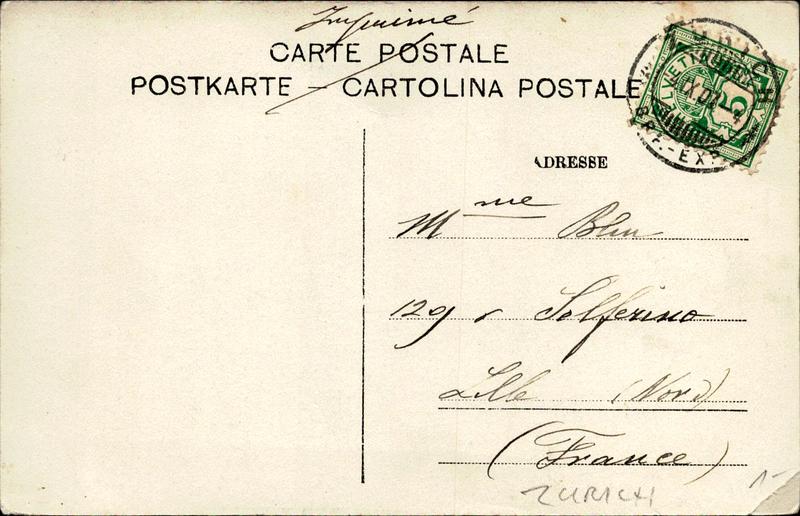 Imprimé
CARTE POSTALE
POSTKARTE – CARTOLINA POSTALE
5
BRF.-EXP.
ADRESSE
Mme Blum
129 r Solferino
Lille (Nord)
(France)
ZURICH
1-